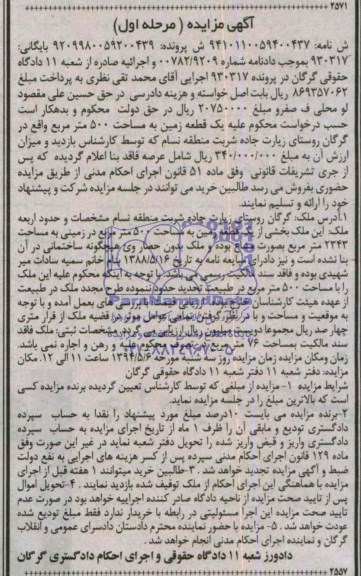 ۲۵۷۱
آگهی مزایده ( مرحله اول)
ش نامه: ۹۴۱۰۱۱۰۰۵۹۴۰۰۴۳۷ ش پرونده: ۹۲۰۹۹۸۰۰۵۹۲۰۰۴۳۹ بایگانی:
۹۳۰۳۱۷ بموجب دادنامه شماره ۰۰۷۸۲/۹۲۰۹ و اجرائیه صادره از شعبه ۱۱ دادگاه
حقوقی گرگان در پرونده ۹۳۰۳۱۷ اجرایی آقای محمد تقی نظری به پرداخت مبلغ
۸۶۹۳۵۷۰۶۲ ریال بابت اصل خواسته و هزینه دادرسی در حق حسین علی مقصود
لو محلی ف صفرو مبلغ ۲۰۷۵۰۰۰۰ ریال در حق دولت محکوم و بدهکار است
حسب درخواست محکوم علیه یک قطعه زمین به مساحت ۵۰۰ متر مربع واقع در
گرگان روستای زیارت جاده شربت منطقه نسام که توسط کارشناس بازدید و میزان
ارزش آن به مبلغ ۳۴۰/۰۰۰/۰۰۰ ریال شامل عرصه فاقد بنا اعلام گردیده که پس
از جری تشریفات قانونی وفق ماده ۵۱ قانون اجرای احکام مدنی از طریق مزایده
حضوری بفروش می رسد طالبین خرید می توانند در جلسه مزایده شرکت و پیشنهاد
خود را ارائه و تسلیم نمایند.
۱.آدرس ملک: گرگان روستای زیارت جاده شربت منطقه نسام مشخصات و حدود اربعه
ملک: این ملک بخشی از یک قطعه زمین به مساحت ۵۰۰ متر مربع در زمینی به مساحت
۲۳۴۳ متر مربع بصورت مشاع بوده و ملک بدون حصار وی هیچگونه ساختمانی در آن
بنا نشده است و نیز دارای مبایعه نامه به تاریخ ۱۳۸۸/۵/۱۶ بنام خانم سمیه سادات میر
شهیدی بوده و فاقد سند مالکیت رسمی می باشد. با توجه به محکوم علیه این ملک
را با مساحت ۵۰۰ متر مربع در طبیعت تحدید حدود نموده طرح مجدد ملک در طبیعت
از عهده هیئت کارشناسان ارزیابی و بررسی های بعمل آمده و با توجه
به موقعیت و مساحت و با در نظر گرفتن تمامی عوامل موثر در قضیه ملک از قرار متری
چهار صد ریال مجموعا دویست میلیون ریال ارزیابی مشخصات ثبتی: ملک فاقد
سند مالکیت بمساحت ۷۶ متر مربع متصرف محکوم علیه و رهن و اجاره نمی باشد.
زمان ومکان مزایده زمان مزایده روز سه شنبه مورخه ۱۳۹۴/۵/۶ ساعت ۱۱ الی ۱۲. مکان
مزایده: دفتر شعبه ۱۱ دفتر شعبه ۱۱ دادگاه حقوقی گرگان
شرایط مزایده ۱- مزایده از مبلغی که توسط کارشناس تعیین گردیده برنده مزایده کسی
است که بالاترین مبلغ را در جلسه مزایده نماید.
۲-برنده مزایده می بایست ۱۰درصد مبلغ مورد پیشنهاد را نقدا به حساب سپرده
دادگستری تودیع و مابقی آن را ظرف ۱ ماه از تاریخ اجرای مزایده به حساب سپرده
دادگستری واریز و قبض واریز شده را تحویل دفتر شعبه نماید در غیر این صورت وفق
ماده ۱۲۹ قانون اجرای احکام مدنی سپرده پس از کسر هزینه های اجرایی به نفع دولت
ضبط و آگهی مزایده تجدید خواهد شد .۳-طالبین خرید میتوانند ۱ هفته قبل از اجرای
مزایده با هماهنگی این اجرای احکام از ملک توقیف شده بازدید نمایند .۴-تحویل اموال
پس از تایید صحت مزایده از ناحیه دادگاه صادر کننده اجراییه خواهد بود در صورت عدم
تایید صحت مزایده این اجرا مسئولیتی در رابطه با خریدار ندارد فقط مبلغ تودیع شده
عودت خواهد شد .۵- مزایده با حضور نماینده محترم دادستان دادسرای عمومی و انقلاب
گرگان و نماینده اجرای احکام مدنی انجام خواهد شد .
دادورز شعبه ۱۱ دادگاه حقوقی و اجرای احکام دادگستری گرگان
۲۵۵۷